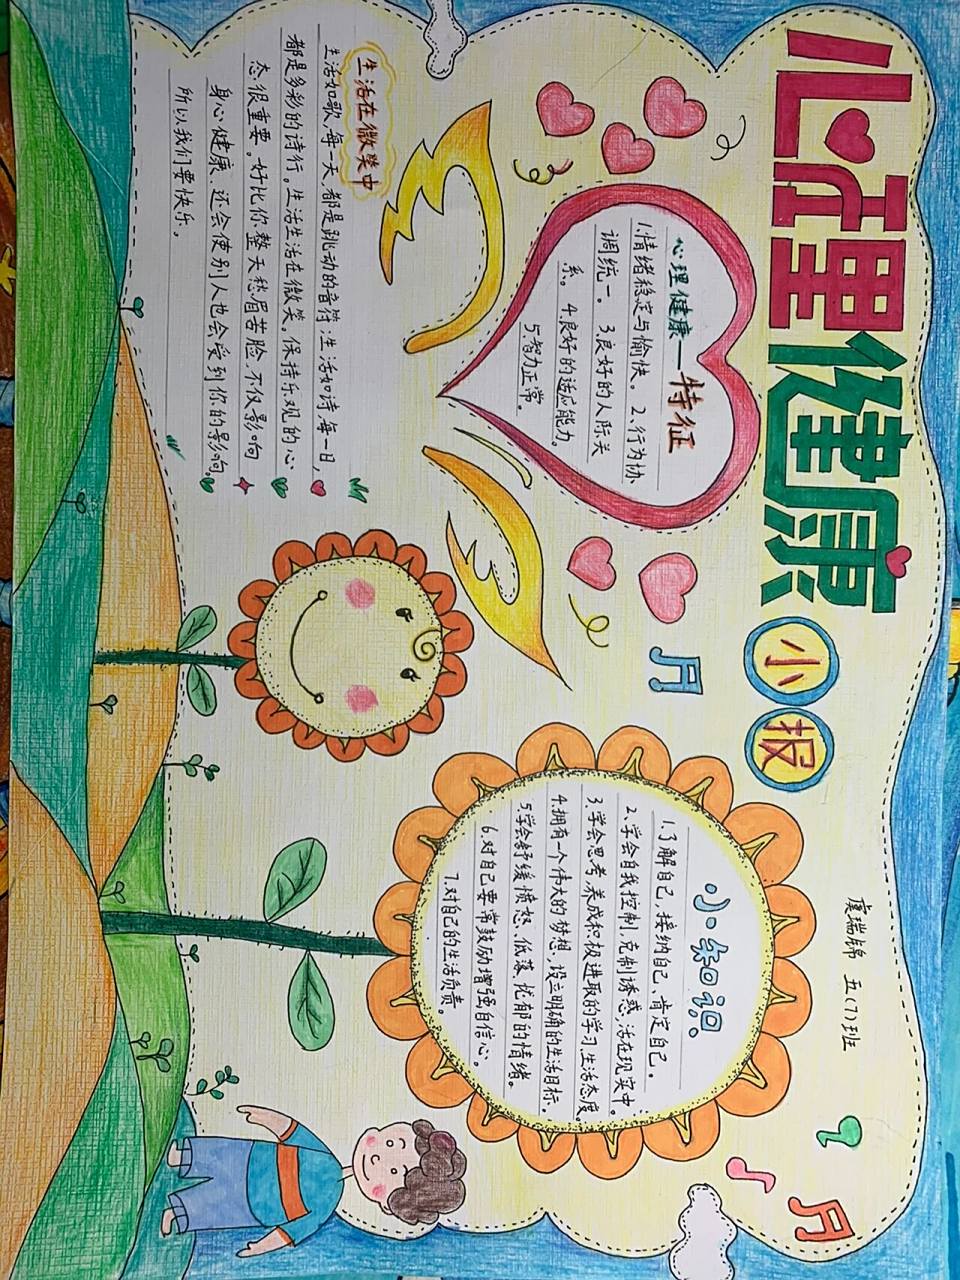 心理健康小报
虞瑞锦 五(7)班
心理健康—特征
1.情绪稳定与愉快。2.行为协
调统一。3.良好的人际关
系。4.良好的适应能力。
5.智力正常。
生活在微笑中
生活如歌,每一天,都是跳动的音符;生活如诗,每一日,
都是多彩的诗行。生活生活在微笑。保持乐观的心
态很重要。好比你整天愁眉苦脸,不仅影响
身心健康、还会使别人也会受到你的影响。
所以我们要快乐。
小知识
1.了解自己,接纳自己,肯定自己。
2.学会自我控制,克制诱惑,活在现实中。
3.学会思考,养成积极进取的学习生活态度。
4.拥有一个伟大的梦想,设立明确的生活目标。
5.学会舒缓愤怒、低落、忧郁的情绪。
6.对自己要常鼓励增强自信心。
7.对自己的生活负责。